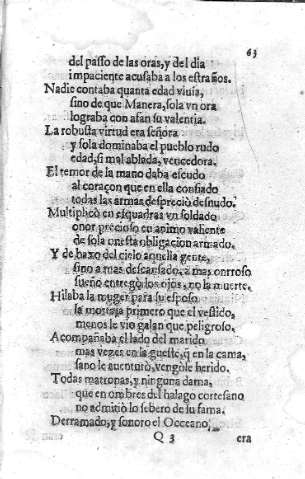 63
del passo de las oras, y del dia
impaciente acusaba a los estraños.
Nadie contaba quanta edad viuia,
sino de que Manera, sola vn ora
lograba con afan su valentia.
La robusta virtud era señora
y sola dominaba el pueblo rudo
edad, si mal ablada, vencedora.
El temor de la mano daba escudo
al coraçon que en ella confiado
todas las armas despreciò desnudo.
Multiplicò en esquadras vn soldado
onor precioso en animo valiente
de sola onesta obligacion armado.
Y debaxo del cielo aquella gente,
sino a mas descansado, a mas onrroso
sueño entregò los ojos, no la muerte.
Hilaba la muger para su esposo
la mortaja primero que el vestido,
menos le vio galan que peligroso.
Acompañaba el lado del marido
mas vezes en la gueste, q̃ en la cama,
sano le auenturò, vengòle herido.
Todas matronas, y ninguna dama,
que en ombres del halago cortesano
no admitiò lo sebero de su fama.
Derramado, y sonoro el Occeano
Q 3 era